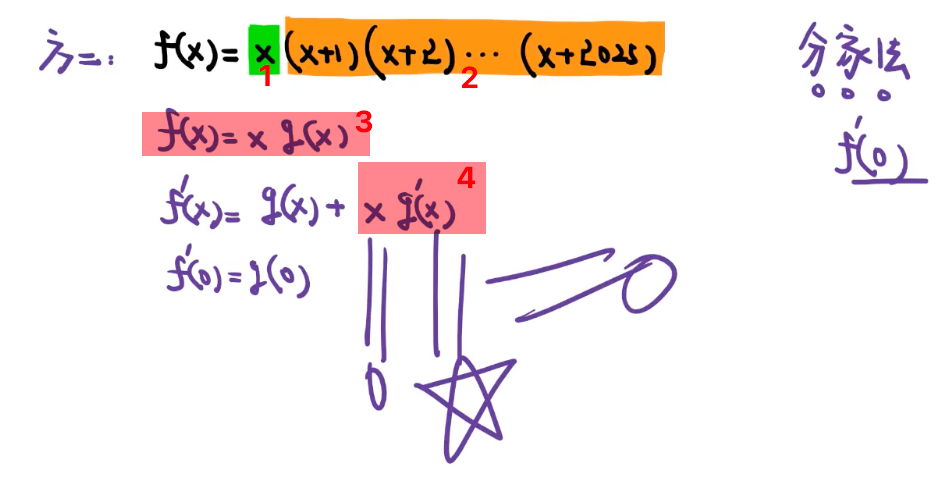 方二: f(x)= x (x+1)(x+2)⋯(x+2025)
1
2
分家法
f'(0)
f(x)= x g(x)
3
f'(x)= g(x)+ x g'(x)
4
f'(0)=g(0)
0